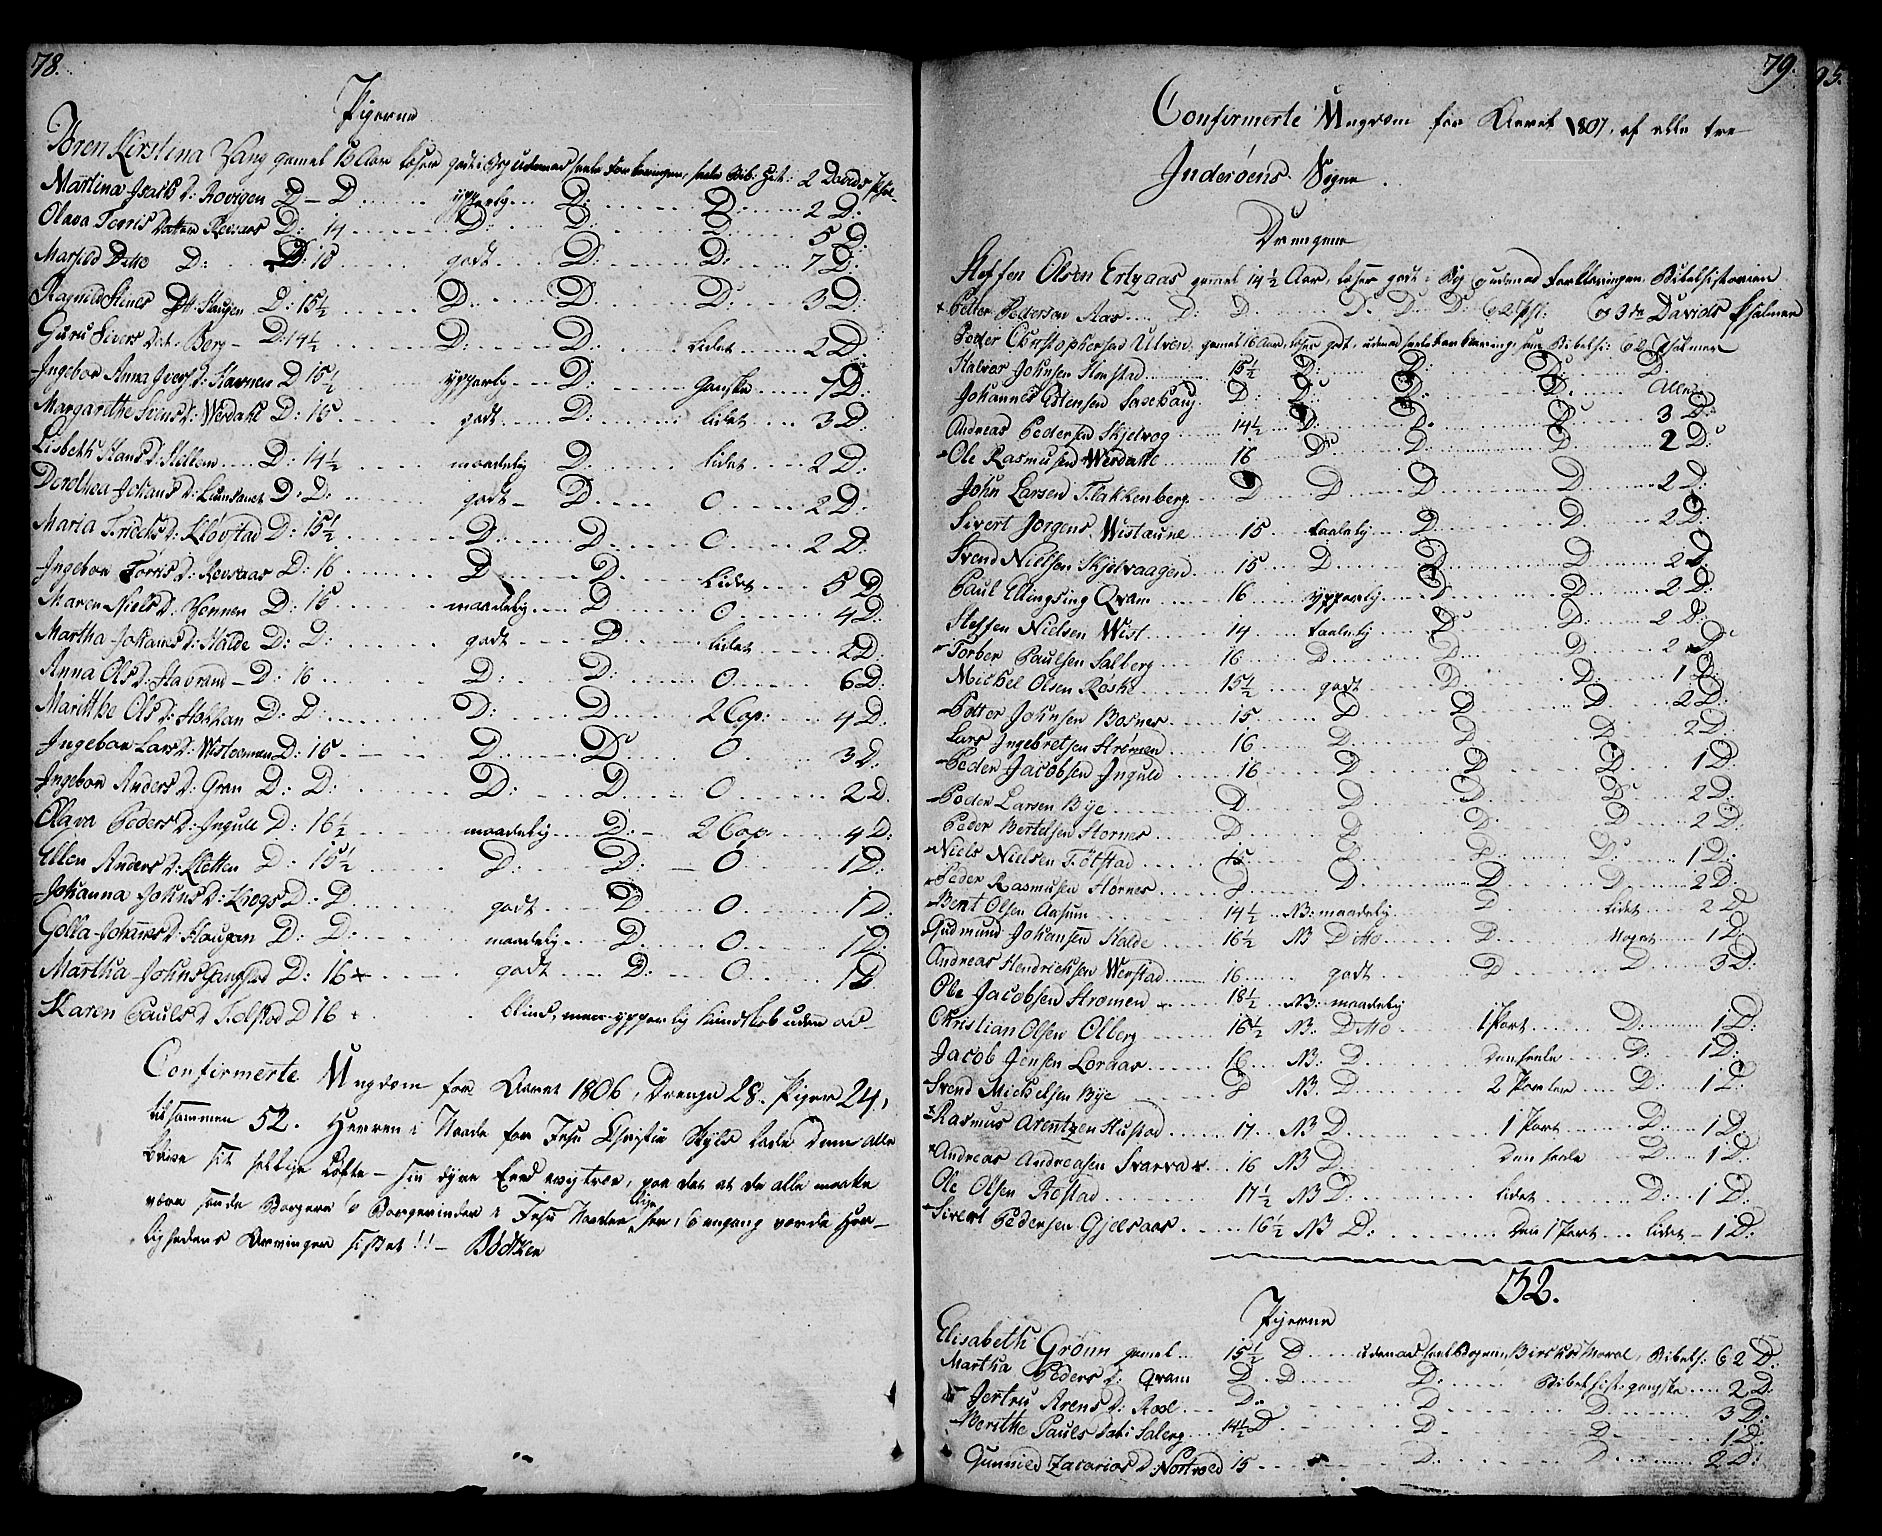 78.
Pigerne
Karen Kirstina Vang gamel 15 Aar læser godt i Bog udenad heele Forklaringen, heele Bib: Hist: 2 Davids Psal:
Martina Isachs D: Rovigen D - D ypperlig D: D: 2 D:
Olava Torris Datter Revaas D: 14 D: D: D: 5 D:
Marsild Ditto D: D: 15 godt D: D: 7 D:
Ragnild Steners D: Haugen D: 15½ D: D: D: 3 D:
Guru Sivers D:t: Berg - D: 14½ D: D: Lidet 2 D:
Ingebor Anna Ivers D: Havnen D 15½ ypperlig D: ganske 7 D:
Margarethe Svens D: Werdahl D: 15 godt D: lidet 3 D:
Lisbeth Hans D: Hellem D: 14½ maadelig D: lidet 2 D:
Dorothea Johans D: Lundsnet D: D: godt D 0 2 D:
Maria Fredrichs D: Kløvstad D: 15½ D: D 0 2 D:
Ingebor Torris D: Revaas D: 16 D D Lidet 5 D
Maren Niels D: Vennen D: 15 maadelig D 0 4 D:
Martha Johans D: Halde D: D: godt D lidet 2 D:
Anna Ols D: Havrand - D: 16 D: D: 0 6 D:
Maritthe Ols D: Hokkan D: D: D: D 2 Cap: 4 D:
Ingebor Lars D: Wistvomen D: 15 D: D 0 3 D:
Ingebor Anders D: Gran D: D: D: D 0 2 D.
Olava Peders D: Ingull D: 16½ maadelig D: 2 Cap: 4 D:
Ellen Anders D: Kletten D: 15½ D: D: 0 1 D:
Johanna Johns D: Krogs D: D godt D 0 1 D:
Golla Johannes D: Haugan D: D: maadelig D: 0 1 D:
Martha Johns Gangstad D: 16 + godt D: 0 1 D
Karen Pauls D Tolstad D 16 + blind, men ypperlig Kundskab uden ad
Confirmerte Ungdom for Aaret 1806, Drenge 28. Piger 24,
tilsammen 52. Herren i Naade for Jesu Christi Skyld lade dem alle
blive sit hellige Løfte - sin dyre Eed evig troe, paa det at de alle maatte
være sande Borgere & Borgerinder i Jesu Naades rige her, & engang vorde Her-
lighedens Arvinger hisset!! - Bødtker
79.
95.
Confirmerte Ungdom for Aaret 1807, af alle tre
Inderøens Sogne.
Drengene
Steffen Olsen Ertzaas gamel 14½ Aar, læser godt i Bog & udenad Forklaringen, Bibelhistorien
+ Petter Pedersen Aas D: D D: D: D: & 2 Psl: & 3de Davids Psalmer
Peder Christophersen Ulven gamel 16 Aar, læser godt, udenad heele Forklaring, sin Bibelhi: & 2 Psalmer
Halvor Johnsen Hemstad 15½ D: D: D: D:
Johannes Estensen Saxehaug D: D: D: D: Alle
Andreas Pedersen Skjelvog 14½ D: D: D: 3 D:
Ole Rasmusen Werdahl 16 D: D: D 2 D:
John Larsen Flakkenberg D D D D 2 D:
Sivert Jorgens. Wistaune 15 taalelig D: D 2 D:
Svend Nielsen Skjelvaagen 15 D D D 2 D:
Paul Ellingsing Qvam 16 ypperlig D D: 2 D:
Steffen Nielsen Wist 14 taalelig D: D: 2 D:
Torber Paulsen Salberg 16 D D: D 2 D:
Michel Olsen Røske 15½ godt D D: 1 D:
Petter Johnsen Bosnes 15 D D D: 2 D:
Lars Ingebretsen Strømen 16 D D D: 2 D:
Peder Jacobsen Inguld 16 D D D 1 D:
Peder Larsen Bÿe D: D D D: 2 D:
Peder Bertelsen Hornes D D D D 2 D:
Niels Nielsen Tötstad 15 D D: D: 1 D:
Peder Rasmusen Hornes D D D D 2 D:
Bent Olsen Aasum 14½ NB: maadelig D lidet 2 D
Gudmund Johansen Halde 16½ NB Ditto D: Noget 1 D:
Andreas Hendrichsen Werstad 16 godt D D 3 D:
Ole Jacobsen Strømen 18½ NB: maadelig
Christian Olsen Olberg 16½ NB: Ditto 1 Part D: 1 D:
Jacob Jensen Loraas 16 NB: D Den heele D: 1 D:
Svend Michelsen Bÿe D NB: D 2 Parter D: 1 D:
Rasmus Arentzen Hustad 17 NB D 1 Part D: 1 D:
Andreas Andreasen Svarva 16 NB D: Den heele D: 1 D:
Ole Olsen Rostad 17½ NB D: lidet D: 1 D:
Sivert Pedersen Gjelsaas 16½ NB D: den 1 Part lidet - 1 D:
32.
Pigerne
Elisabeth Grønn gamel 15½ D udenad heele Bogen, Birchs Moral, Bibelh: & 2 D:
Martha Peders D: Qvam D. D D: Bibelhist: ganske 2 D:
Jertru Arens D: Rool D: D D: 3 D:
Beritthe Pauls Dat: Salerg 14½ D D D 1 D:
Gunnild Zacarias D: Nøstvold 15 D: D 2 D: